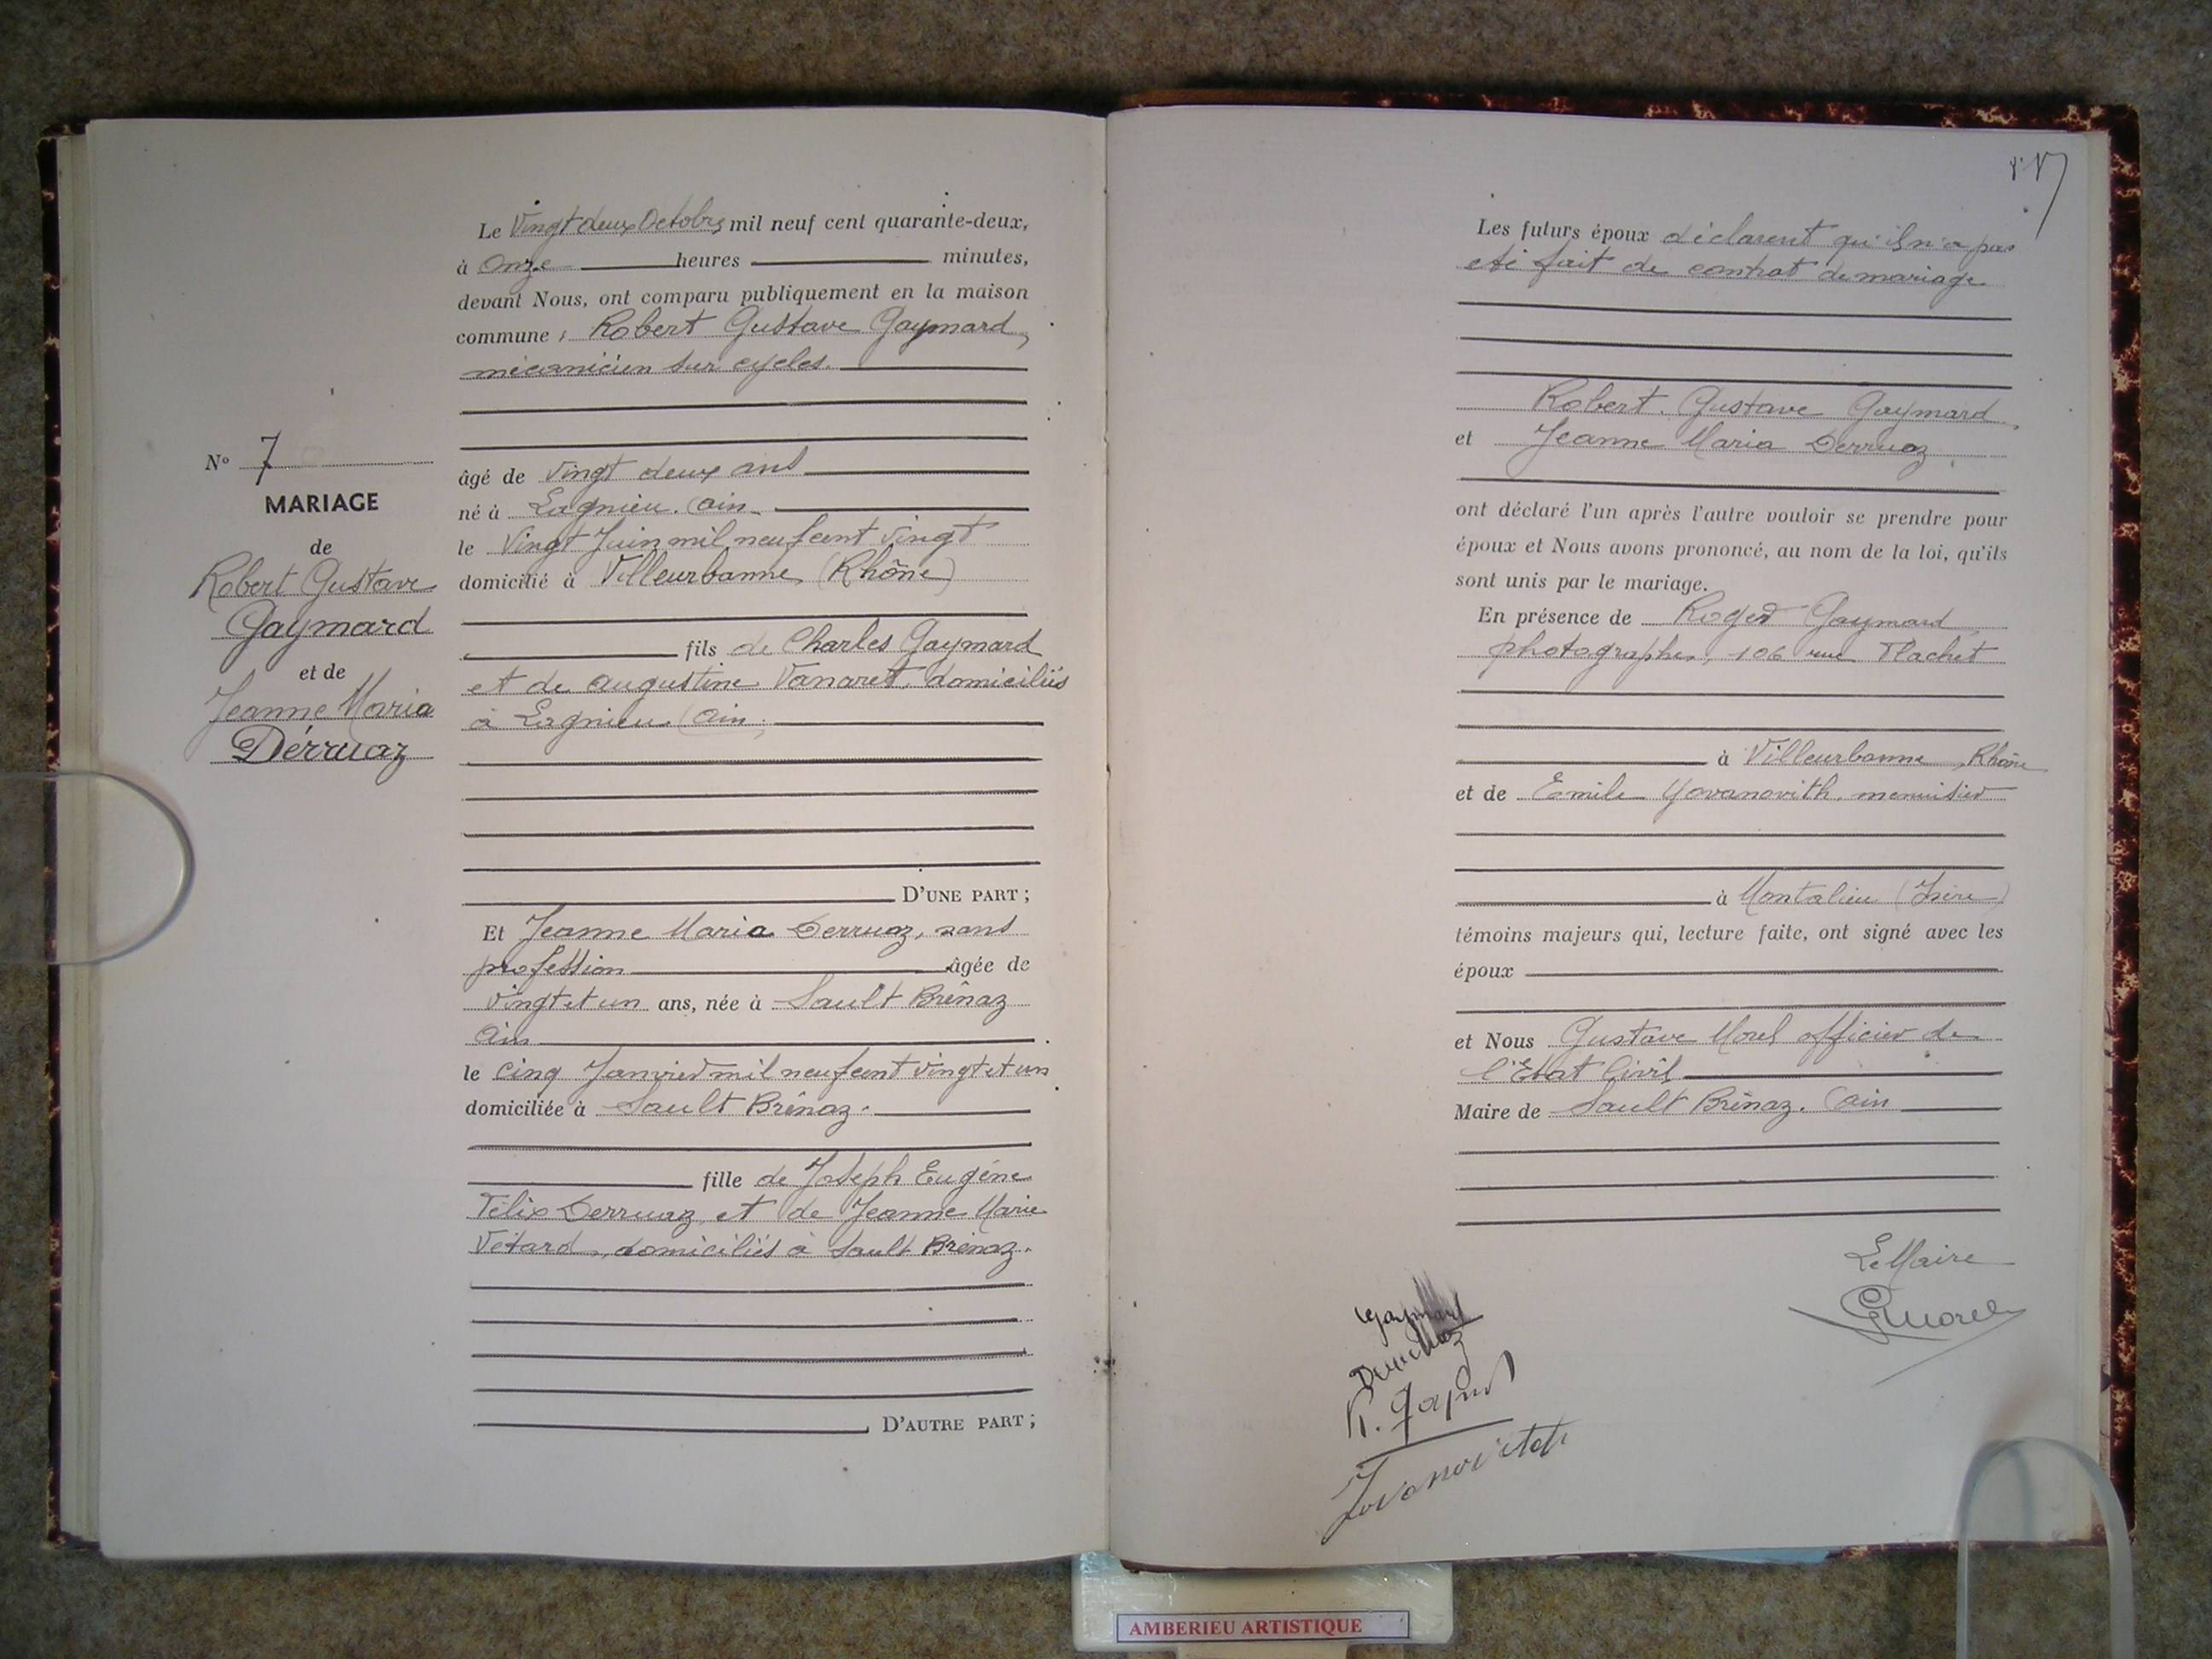 N° 7
MARIAGE
de
Robert Gustave
Gaymard
et de
Jeanne Maria
Dérruaz
Le Vingt deux Octobre mil neuf cent quarante-deux,
à Onze heures minutes,
devant Nous, ont comparu publiquement en la maison
commune, Robert Gustave Gaymard,
mécanicien sur cycles.
âgé de Vingt deux ans
né à Lagnieu. Ain.
le Vingt Juin mil neuf cent vingt
domicilié à Villeurbanne (Rhône)
fils de Charles Gaymard
et de Augustine Vanaret, domiciliés
à Lagnieu (Ain.
D'UNE PART ;
Et Jeanne Maria Derruaz, sans
profession âgée de
vingt et un ans, née à Sault Brênaz
Ain
le Cinq Janvier mil neuf cent vingt et un
domiciliée à Sault Brénaz.
fille de Joseph Eugène
Félix Derruaz et de Jeanne Marie
Vétard, domiciliés à Sault Brénaz.
D'AUTRE PART ;
Les futurs époux déclarent qu'il n'a pas
été fait de contrat de mariage
Robert. Gustave Gaymard
et Jeanne Maria Derruaz
ont déclaré l'un après l'autre vouloir se prendre pour
époux et Nous avons prononcé, au nom de la loi, qu'ils
sont unis par le mariage.
En présence de Roger Gaymard,
photographe, 106 rue Flachet
à Villeurbanne, Rhône
et de Emile Yovanovith menuisier
à Montalieu (Isère)
témoins majeurs qui, lecture faite, ont signé avec les
époux
et Nous Gustave Morel officier de
l'Etat Civil
Maire de Sault Brénaz. Ain
Le Maire
GMorel
Gaymard
Derruaz
Jovanovitch
AMBERIEU ARTISTIQUE